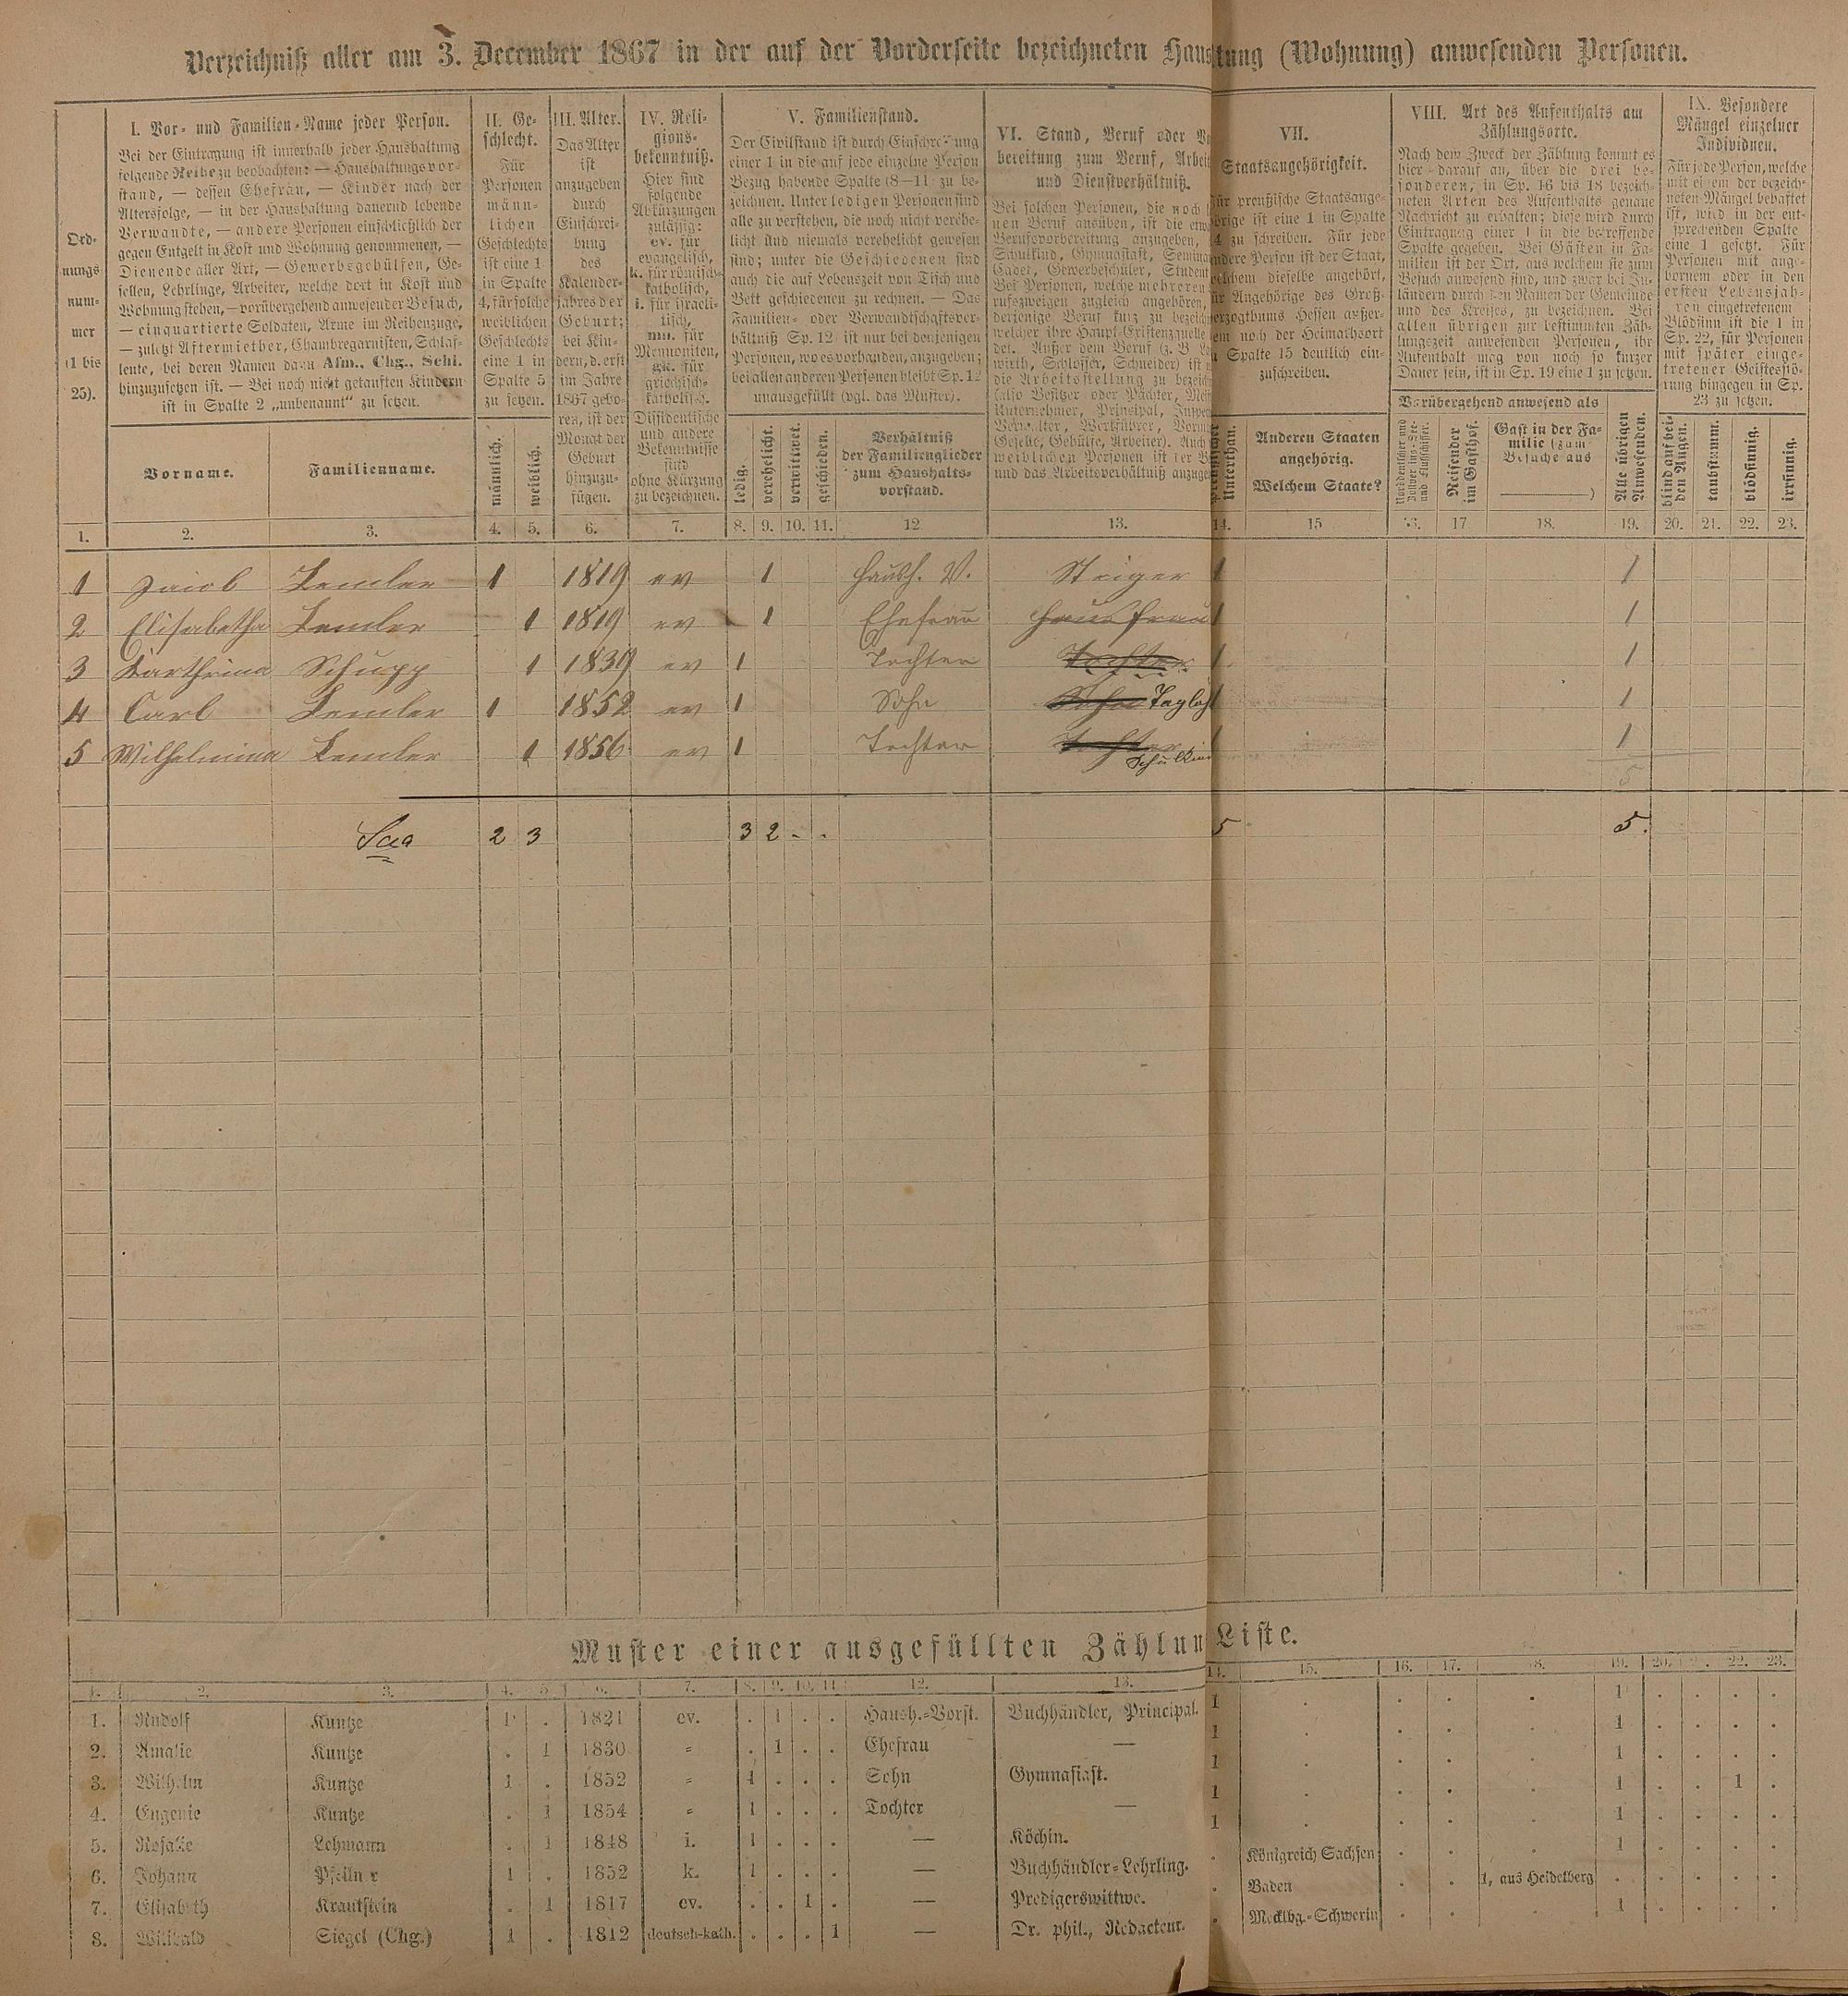 Verzeichniß aller am 3. December 1867 in der auf der Vorderseite bezeichneten Haus tung (Wohnung) anwesenden Personen.
Ord-
nungs
num-
mer
(1 bis
25).
I. Vor- und Familien-Name jeder Person.
Bei der Eintragung ist innerhalb jeder Haushaltung
folgende Reihe zu beobachten: — Haushaltungsvor-
stand, — dessen Ehefrau, — Kinder nach der
Altersfolge, — in der Haushaltung dauernd lebende
Verwandte, — andere Personen einschließlich der
gegen Entgelt in Kost und Wohnung genommenen, —
Dienende aller Art, — Gewerbsgehülfen, Ge-
sellen, Lehrlinge, Arbeiter, welche dort in Kost und
Wohnung stehen, — vorübergehend anwesender Besuch,
— einquartierte Soldaten, Arme im Reihenzuge,
— zuletzt Aftermiether, Chambregarnisten, Schlaf-
leute, bei deren Namen dann Afm., Chg., Schl.
hinzuzusetzen ist. — Bei noch nicht getauften Kindern
ist in Spalte 2 „unbenannt“ zu setzen.
Vorname.
Familienname.
II. Ge-
schlecht.
Für
Personen
männ-
lichen
Geschlechts
ist eine 1
in Spalte
4, für solche
weiblichen
Geschlechts
eine 1 in
Spalte 5
zu setzen.
männlich.
weiblich.
III. Alter.
Das Alter
ist
anzugeben
durch
Einschrei-
bung
des
Kalender-
jahres der
Geburt;
bei Kin-
dern, d. erst
im Jahre
1867 gebo-
ren, ist der
Monat der
Geburt
hinzuzu-
fügen.
IV. Reli-
gions-
bekenntniß.
Hier sind
folgende
Abkürzungen
zulässig:
ev. für
evangelisch,
k. für römisch-
katholisch,
i. für israeli-
tisch,
mn. für
Mennoniten,
gk. für
griechisch-
katholisch.
Dissidentische
und andere
Bekenntnisse
sind
ohne Kürzung
zu bezeichnen.
V. Familienstand.
Der Civilstand ist durch Einschreibung
einer 1 in die auf jede einzelne Person
Bezug habende Spalte (8—11) zu be-
zeichnen. Unter ledigen Personen sind
alle zu verstehen, die noch nicht verehe-
licht und niemals verehelicht gewesen
sind; unter die Geschiedenen sind
auch die auf Lebenszeit von Tisch und
Bett geschiedenen zu rechnen. — Das
Familien- oder Verwandtschaftsver-
hältniß Sp. 12 ist nur bei denjenigen
Personen, wo es vorhanden, anzugeben;
bei allen anderen Personen bleibt Sp. 12
unausgefüllt (vgl. das Muster).
ledig.
verehelicht.
verwittwet.
geschieden.
Verhältniß
der Familienglieder
zum Haushalts-
vorstand.
VI. Stand, Beruf oder
bereitung zum Beruf, Arbei
und Dienstverhältniß.
Bei solchen Personen, die noch
nen Beruf ausüben, ist die etw
Berufsvorbereitung anzugeben,
Schulkind, Gymnasiast, Semina
Cadet, Gewerbeschüler, Student
Bei Personen, welche mehreren
rufszweigen zugleich angehören,
derjenige Beruf kurz zu bezeich
welcher ihre Haupt-Existenzquelle
det. Außer dem Beruf (z. B.
wirth, Schlosser, Schneider) ist
die Arbeitsstellung zu bezeich
(also Besitzer oder Pächter,
Unternehmer, Principal,
Verwalter, Werkführer,
Geselle, Gehülfe, Arbeiter). Auch
weiblichen Personen ist der
und das Arbeitsverhältniß anzuge
VII.
Staatsangehörigkeit.
für preußische Staatsange-
hörige ist eine 1 in Spalte
4 zu schreiben. Für jede
andere Person ist der Staat,
welchem dieselbe angehört,
für Angehörige des Groß-
herzogthums Hessen außer-
dem noch der Heimathsort
Spalte 15 deutlich ein-
zuschreiben.
Unterthan.
Anderen Staaten
angehörig.
Welchem Staate?
VIII. Art des Aufenthalts am
Zählungsorte.
Nach dem Zweck der Zählung kommt es
hier darauf an, über die drei be-
sonderen, in Sp. 16 bis 18 bezeich-
neten Arten des Aufenthalts genaue
Nachricht zu erhalten; diese wird durch
Eintragung einer 1 in die betreffende
Spalte gegeben. Bei Gästen in Fa-
milien ist der Ort, aus welchem sie zum
Besuch anwesend sind, und zwar bei In-
ländern durch den Namen der Gemeinde
und des Kreises, zu bezeichnen. Bei
allen übrigen zur bestimmten Zäh-
lungszeit anwesenden Personen, ihr
Aufenthalt mag von noch so kurzer
Dauer sein, ist in Sp. 19 eine 1 zu setzen.
Vorübergehend anwesend als
Reisender
im Gasthof.
Gast in der Fa-
milie (zum
Besuche aus
)
Alle übrigen
Anwesenden.
IX. Besondere
Mängel einzelner
Individuen.
Für jede Person, welche
mit einem der bezeich-
neten Mängel behaftet
ist, wird in der ent-
sprechenden Spalte
eine 1 gesetzt. Für
Personen mit ange-
bornem oder in den
ersten Lebensjah-
ren eingetretenem
Blödsinn ist die 1 in
Sp. 22, für Personen
mit später einge-
tretener Geistesstö-
rung hingegen in Sp.
23 zu setzen.
blind auf bei-
den Augen.
taubstumm.
blödsinnig.
irrsinnig.
1. 2. 3. 4. 5. 6. 7. 8. 9. 10. 11. 12 13. 14. 15 16. 17 18. 19. 20. 21. 22. 23.
1 Jacob Lemler 1 1819 ev 1 Haush. V. Steiger 1 1
2 Elisabetha Lemler 1 1819 ev 1 Ehefrau Hausfrau 1 1
3 Karthrina Schupp 1 1839 ev 1 Tochter Tochter 1 1
4 Carl Lemler 1 1852 ev 1 Sohn Sohn Taglöh 1 1
5 Wilhelmina Lemler 1 1856 ev 1 Tochter Tochter Schulkind 1 1
5
Sa 2 3 3 2 - - 5 5.
Muster einer ausgefüllten Zählun Liste.
1. 2. 3. 4. 5. 6. 7. 8. 9. 10. 11. 12. 13. 14. 15. 16. 17. 18. 19. 20. 21. 22. 23.
1. Rudolf Kuntze 1 . 1821 ev. . 1 . . Haush.-Vorst. Buchhändler, Principal. 1 . . . . 1 . . . .
2. Amalie Kuntze . 1 1830 „ . 1 . . Ehefrau — 1 . . . . 1 . . . .
3. Wilhelm Kuntze 1 . 1852 „ 1 . . . Sohn Gymnasiast. 1 . . . . 1 . . . .
4. Eugenie Kuntze . 1 1854 „ 1 . . . Tochter — 1 . . . . 1 . . 1 .
5. Rosalie Lehmann . 1 1848 i. 1 . . . — Köchin. 1 . . . . 1 . . . .
6. Johann Pfeilner 1 . 1852 k. 1 . . . — Buchhändler-Lehrling. . Königreich Sachsen . . . 1 . . . .
7. Elisabeth Krautstein . 1 1817 ev. . . 1 . — Predigerswittwe. . Baden . . 1, aus Heidelberg . . . . .
8. Willibald Siegel (Chg.) 1 . 1812 deutsch-kath. . . . 1 — Dr. phil., Redacteur. . Mecklbg.-Schwerin . . . 1 . . . .